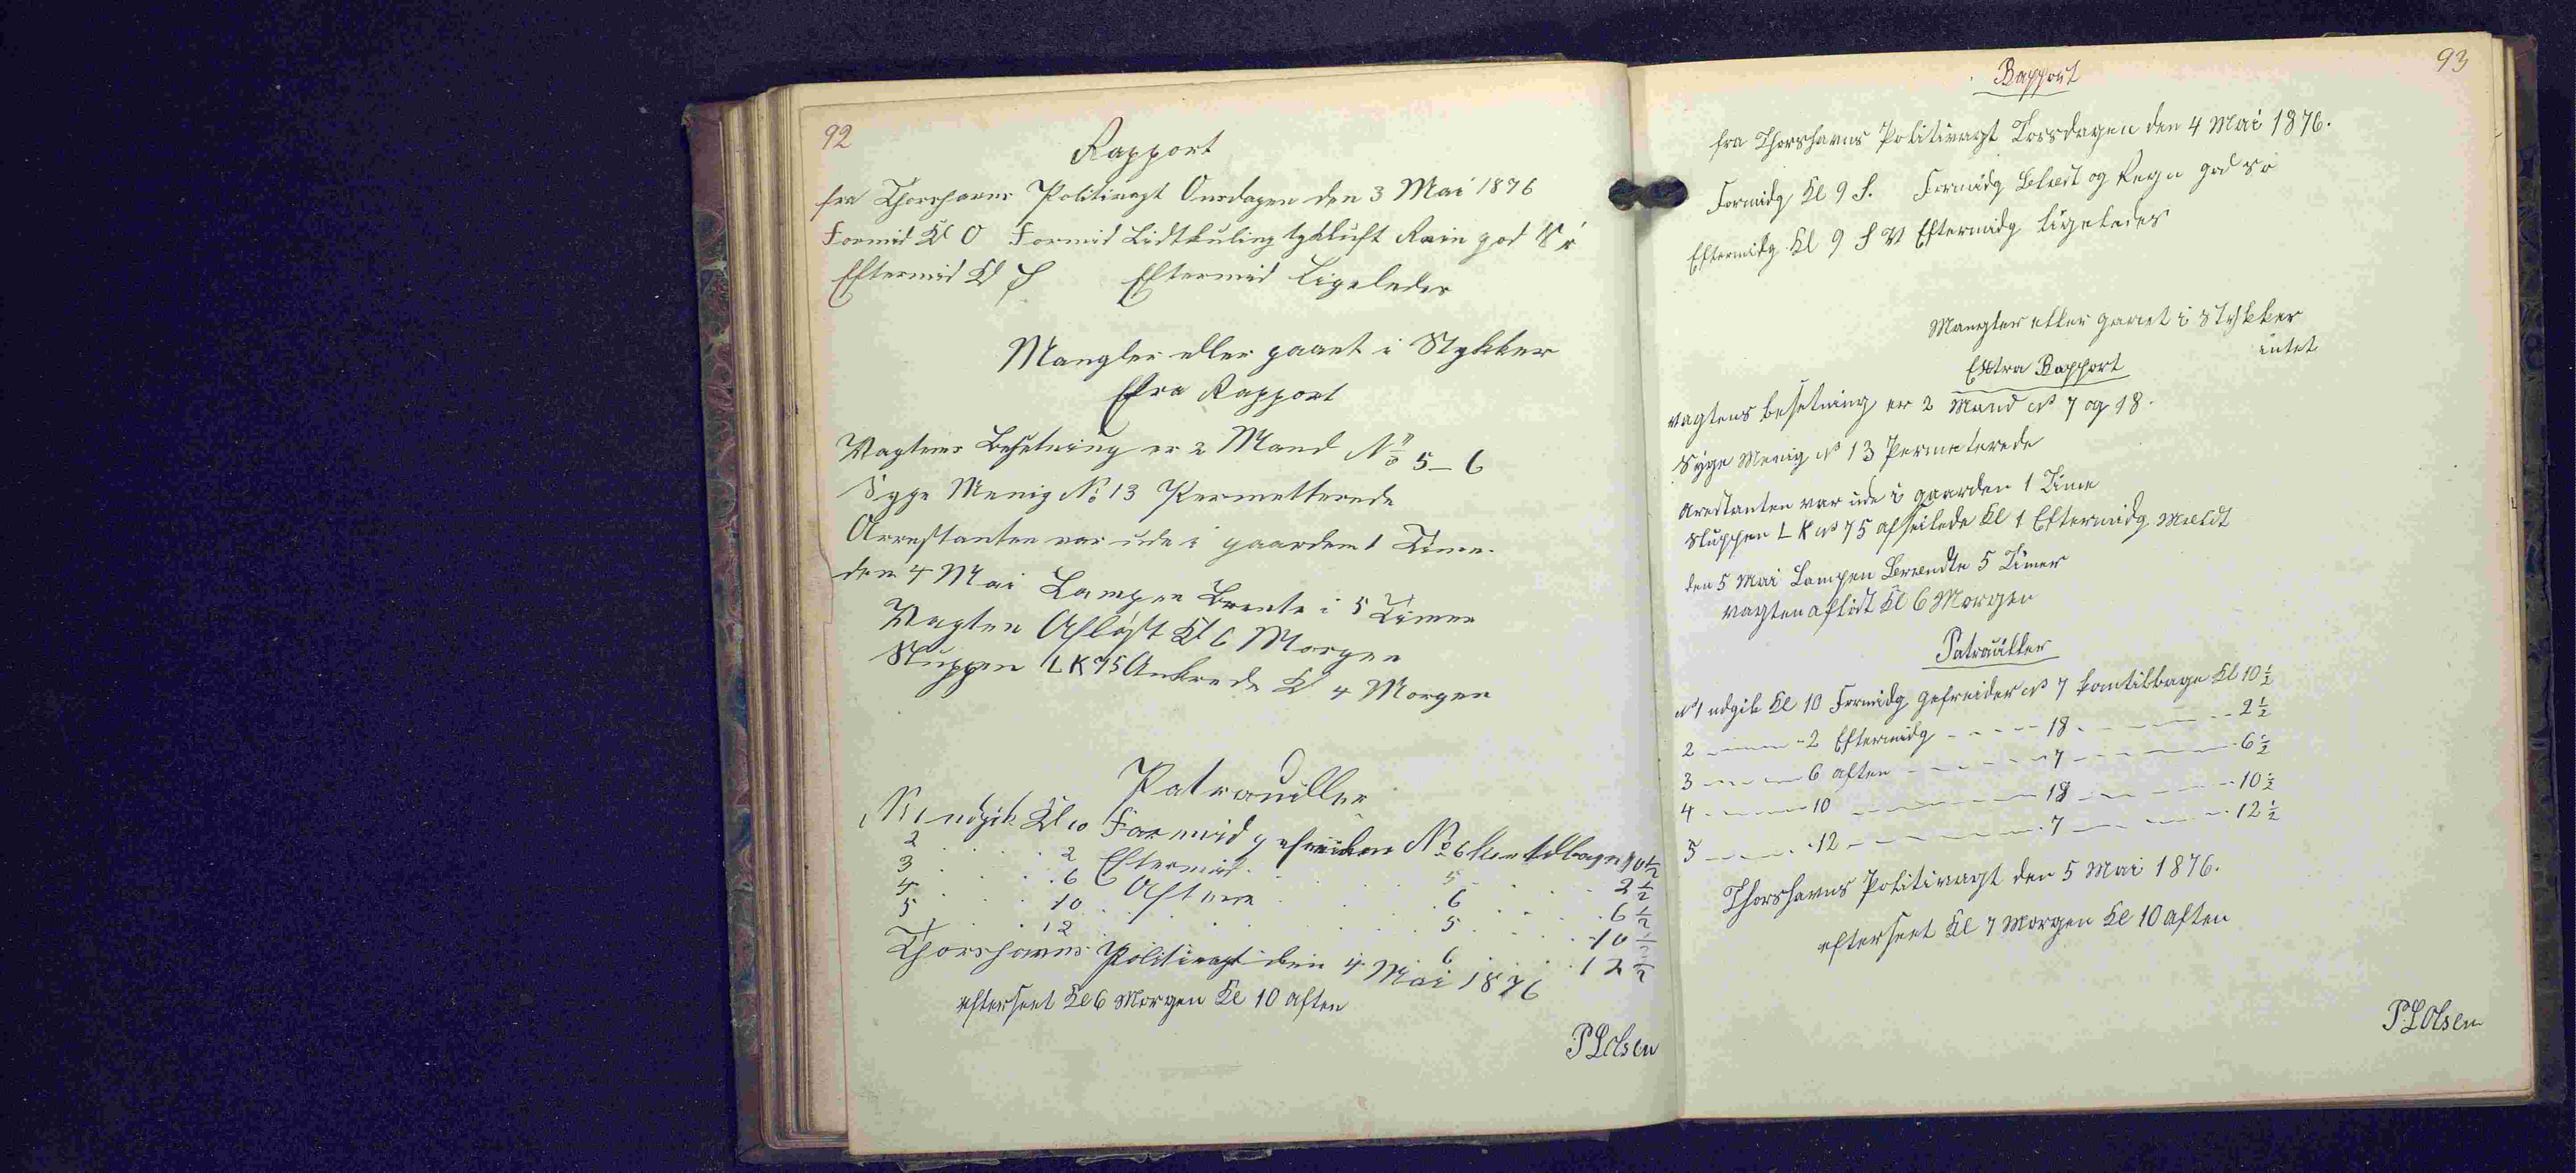 92
Rapport
fra Thorshavns Politivagt Onsdagen den 3 Mai 1876
Formid Kl O Formid Lidtkuling tykluft Rein god Sö
Eftermid Kl S Eftermid Ligeledes
Mangler eller gaaet i Stykker
Extra Rapport
Vagtens Besetning er 2 Mand No 5 - 6
Syge Menig No 13 Permetterede
Arrestanten var ude i gaarden 1 Time
den 4 Mai Lampen Brente i 5 Timer
Vagten Aflöst Kl 6 Morgen
Sluppen LK 75 Ankrede Kl 4 Morgen
Patrouiller
No 1 udgik Kl 10 Formid gefreider No 6 kom tilbage 10 1/2
2 . . . 2 Eftermid . . . 5 . . . 2 1/2
3 . . . 6 Aften . . . 6 . . . 6 1/2
4 . . . 10 . . . 5 . . . 10 1/2
5 . . . 12 . . . 6 . . . 12 1/2
Thorshavns Politivagt den 4 Mai 1876
efterseet Kl 6 Morgen Kl 10 aften
P L Olsen
93
Rapport
fra Thorshavns Politivagt Torsdagen den 4 Mai 1876.
Formidg Kl 9 S. Formidg Blæst og Regn god Sö
Eftermidg Kl 9 S V Eftermidg ligeledes
Mangler eller gaaet i Stykker
intet
Extra Rapport
vagtens besetning er 2 Mand No 7 og 18.
Syge Menig No 13 Permeterede
Arestanten var ude i gaarden 1 Time
Sluppen L K No 75 afseilede Kl 1 Eftermidg
den 5 Mai Lampen Brændte 5 Timer
vagten aflöst Kl 6 Morgen
Patrouiller
No 1 udgik Kl 10 Formidg gefreider No 7 kom tilbage Kl 10 1/2
2 - - - 2 Eftermidg - - - 18 - - - 2 1/2
3 - - - 6 aften - - - 7 - - - 6 1/2
4 - - - 10 - - - 18 - - - 10 1/2
5 - - - 12 - - - 7 - - - 12 1/2
Thorshavns Politivagt den 5 Mai 1876.
efterseet Kl 7 Morgen Kl 10 aften
P. L Olsen